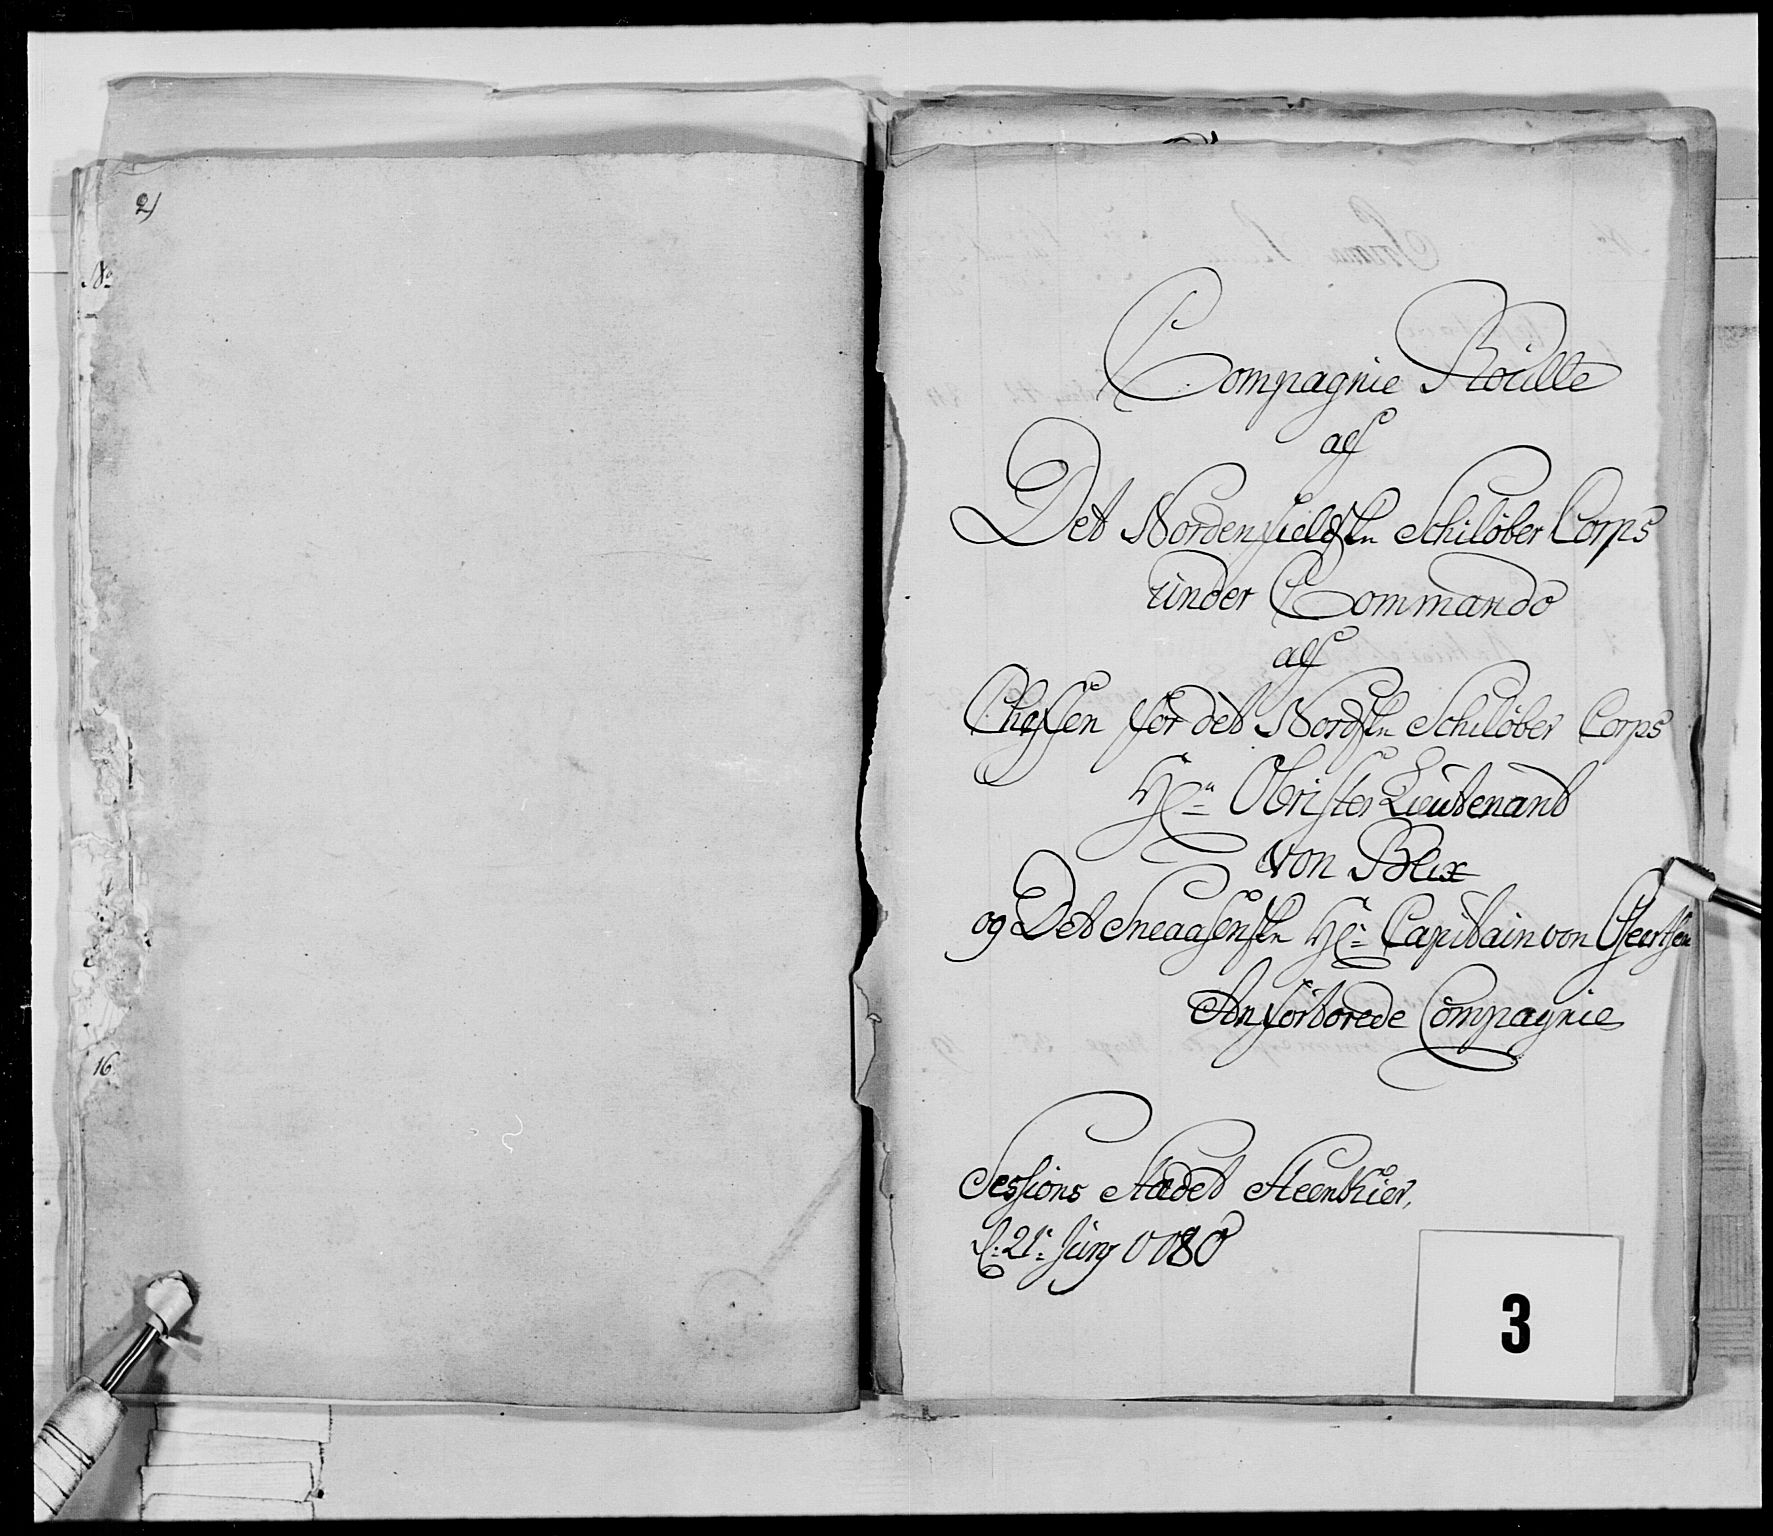 2)
No
16
Compagnie Roulle
af
Det Nordenfieldske Schiløber Corps
under Commando
af
Cheffen for det Nordske Schiløber Corps
Hr. Obrister Lieutenant
von Blix
og Det Sneaasenske Hr. Capitain von Geertsen
Anfortroede Compagnie
Sessions Stædet Steenkier,
d: 21e Junj 1780
3